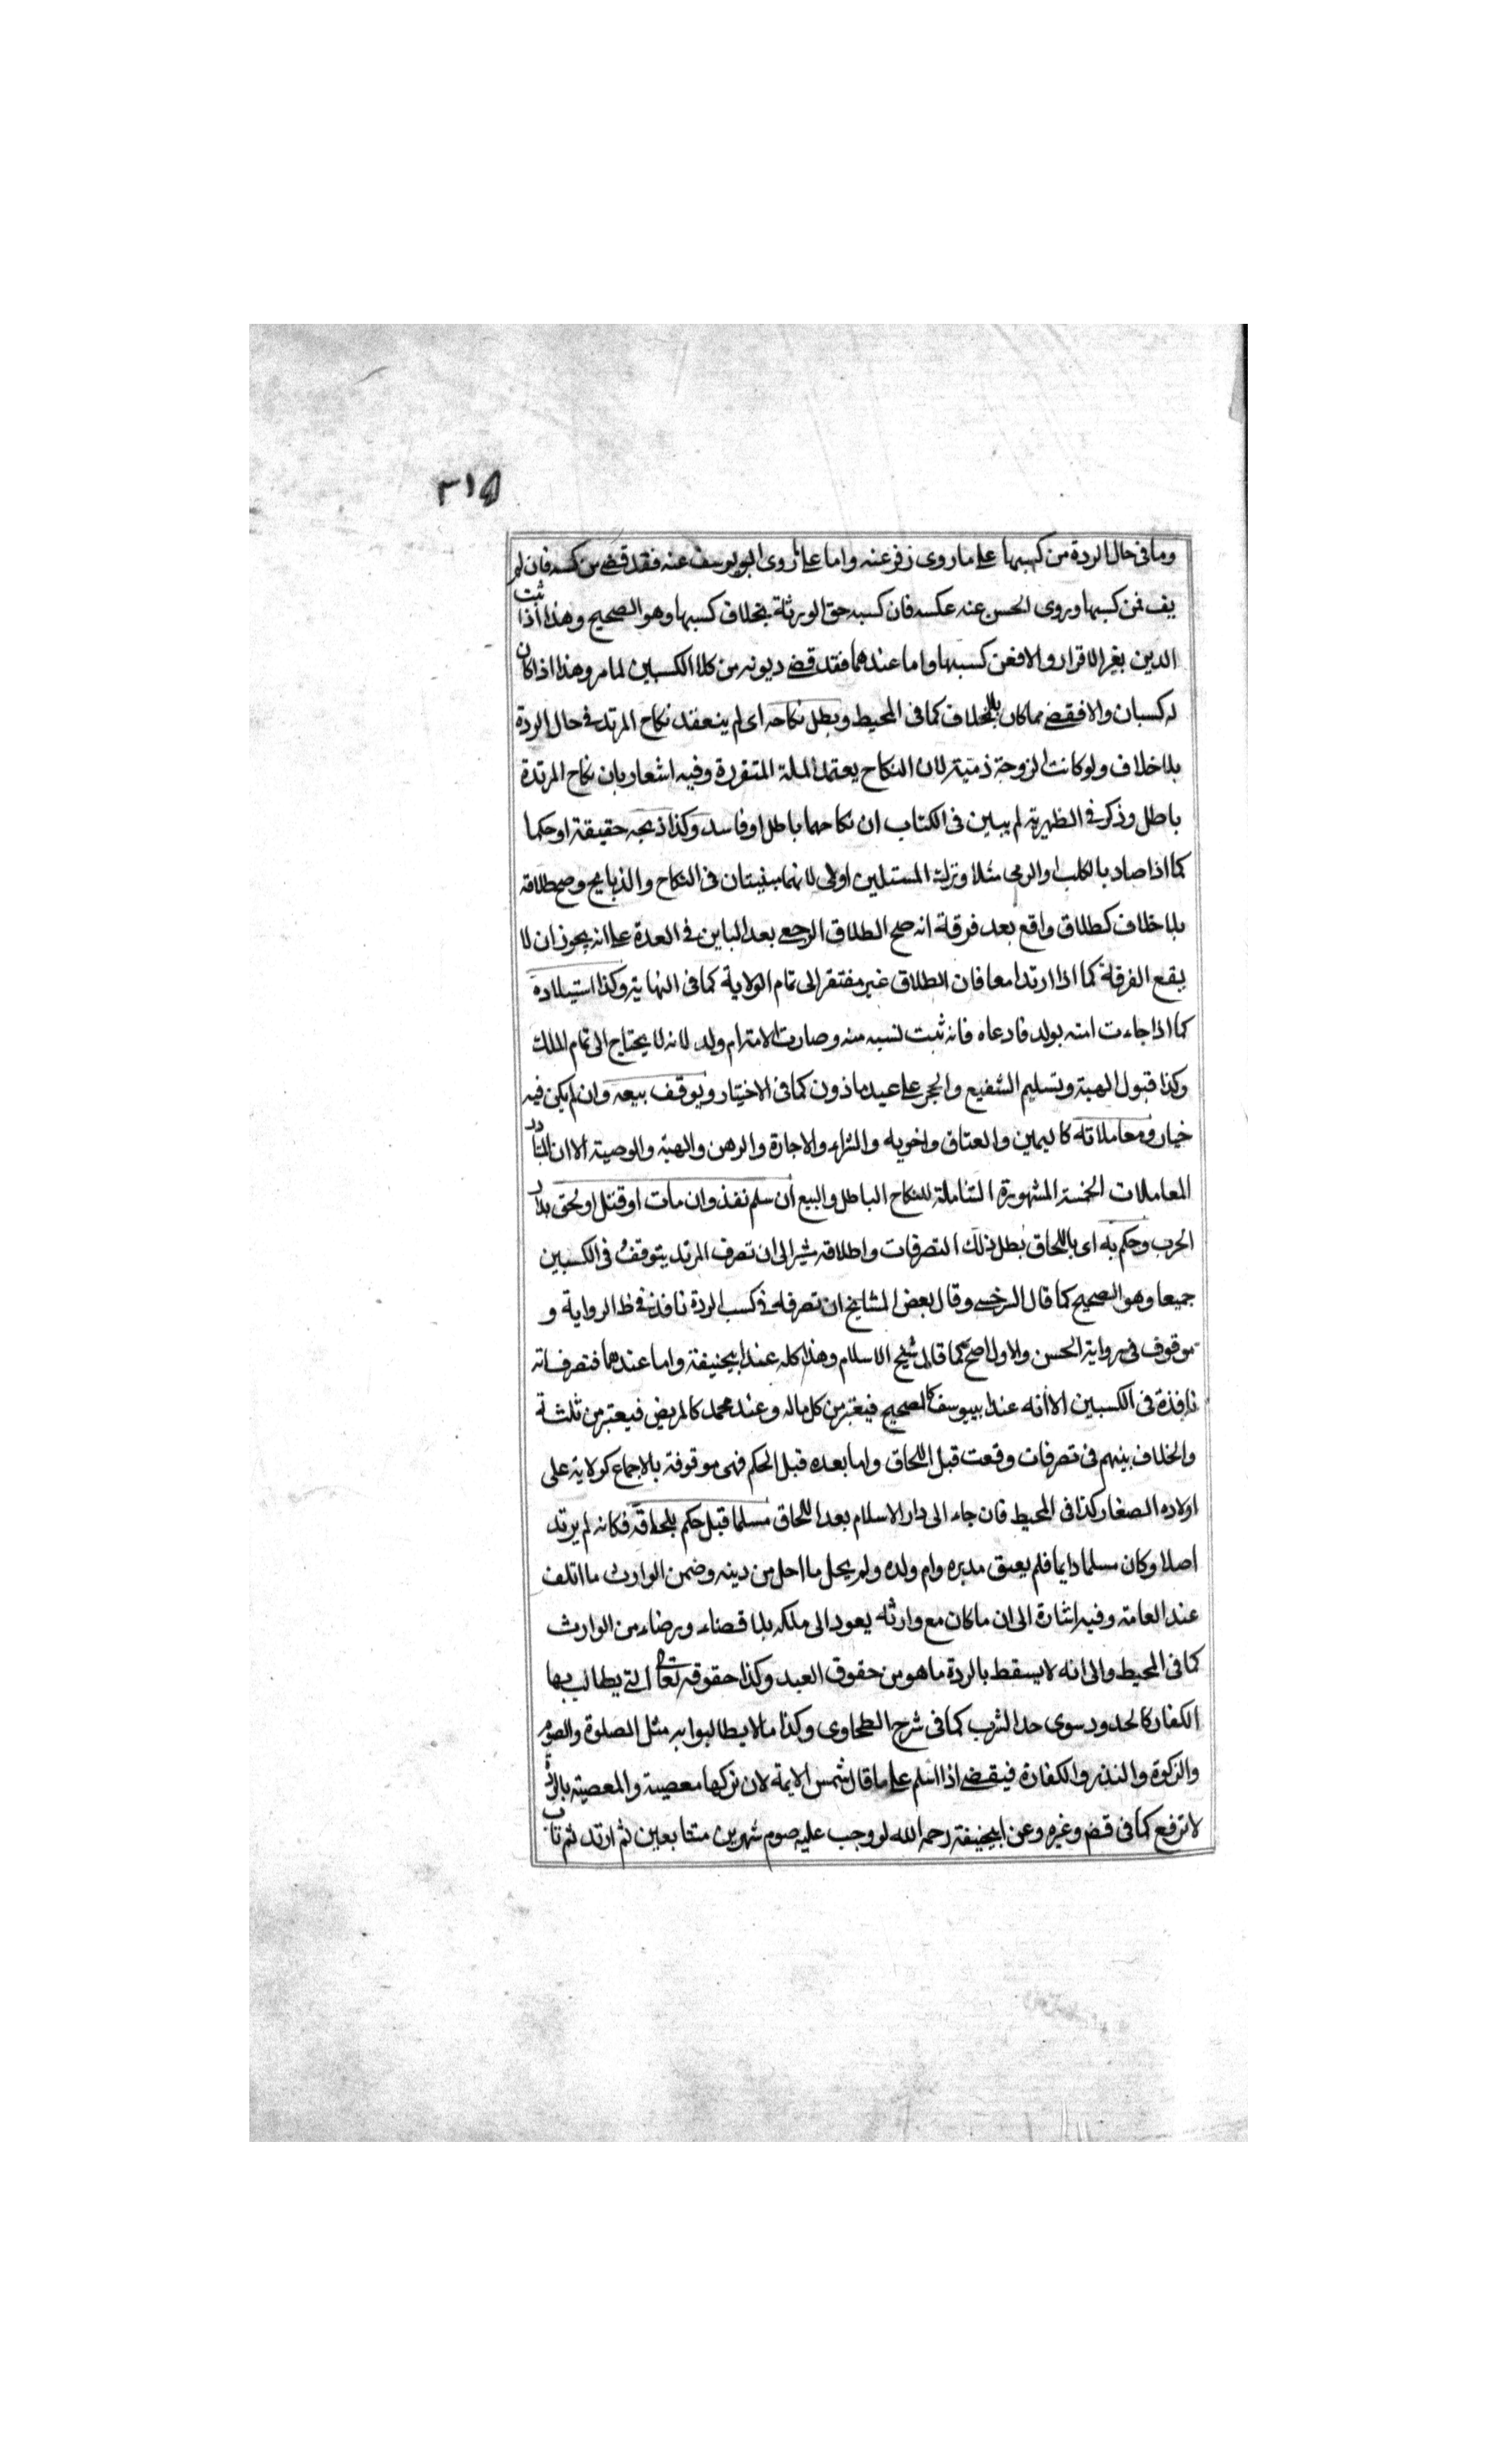 ٣١٥
وما فى حال الردة من كسبها على ما روى زفر عنه واما على ما روى ابو يوسف عنه فقد قضى من كسبه فان لم
يف فمن كسبها وروى الحسن عنه عكسه فان كسبه حق الورثة بخلاف كسبها وهو الصحيح وهذا اذا ثبت
الدين بغير الاقرار والا فعن كسبها واما عندهما فقد قضى ديونه من كلا الكسبين لما مر وهذا اذا كان
له كسبان والا فقضى مما كان بلا خلاف كما فى المحيط وبطل نكاحه اى لم ينعقد نكاح المرتد فى حال الردة
بلا خلاف ولو كانت الزوجة ذمية لان النكاح يعتمد الملة المتقررة وفيه اشعار بان نكاح المرتدة
باطل وذكر فى الظهيرية لم يبين فى الكتاب ان نكاحهما باطل او فاسد وكذا ذبحه حقيقة او حكما
كما اذا صاد بالكلب والرمى مثلا وترك المسئلين اولى لانهما سيبنيتان فى النكاح والذبايح وصح طلاقه
بلا خلاف كطلاق واقع بعد فرقة انه صح الطلاق الرجعى بعد الباين فى العدة على انه يجوز ان لا
يقع الفرقة كما اذا ارتدا معا فان الطلاق غير مفتقر الى تمام الولاية كما فى النهاية وكذا استيلاده
كما اذا جاءت امته بولد فادعاه فانه ثبت نسبه منه وصارت الامة ام ولد لانه لا يحتاج الى تمام الملك
وكذا قبول الهبة وتسليم الشفيع والحجر على عبد ماذون كما فى الاختيار ويوقف بيعه وان لم يكن فيه
خيار ومعاملاته كاليمين والعتاق واخويه والشراء والاجارة والرهن والهبة والوصية الا ان المتبادر
المعاملات الخمسة المشهورة الشاملة للنكاح الباطل والبيع ان سلم نفذ وان مات او قتل او لحق بدار
الحرب وحكم به اى باللحاق بطل ذلك التصرفات واطلاقه يشير الى ان تصرف المرتد يتوقف فى الكسبين
جميعا وهو الصحيح كما قال السرخسى وقال بعض المشايخ ان تصرفه فى كسب الردة نافذ فى ظ الرواية و
موقوف فى رواية الحسن والاول اصح كما قال شيخ الاسلام وهذا كله عند ابيحنيفة واما عندهما فتصرفاته
نافذة فى الكسبين الا انه عند ابييوسف كالصحيح فيعتبر من كل ماله وعند محمد كالمريض فيعتبر من ثلثة
والخلاف بينهم فى تصرفات وقعت قبل اللحاق واما بعده قبل الحكم فهى موقوفة بالاجماع كولاية على
اولاده الصغار كذا فى المحيط فان جاء الى دار الاسلام بعد اللحاق مسلما قبل حكم بلحاقه فكانه لم يرتد
اصلا وكان مسلما دايما فلم يعتق مدبره وام ولده ولم يحل ما احل من دينه وضمن الوارث ما اتلف
عند العامة وفيه اشارة الى ان ما كان مع وارثه يعود الى ملكه بلا قضاء ورضاء من الوارث
كما فى المحيط والى انه لا يسقط بالردة ما هو من حقوق العبد وكذا حقوقه تعالى التى يطالب بها
الكفار كالحدود سوى حد الشرب كما فى شرح الطحاوى وكذا ما لا يطالبوا به مثل الصلوة والصوم
والزكوة والنذر والكفارة فيقضى اذا اسلم على ما قال شمس الايمة لان تركها معصية والمعصية بالردة
لا ترفع كما فى قض وغيره وعن ابيحنيفة رحمه الله لو وجب عليه صوم شهرين متتابعين ثم ارتد ثم تاب